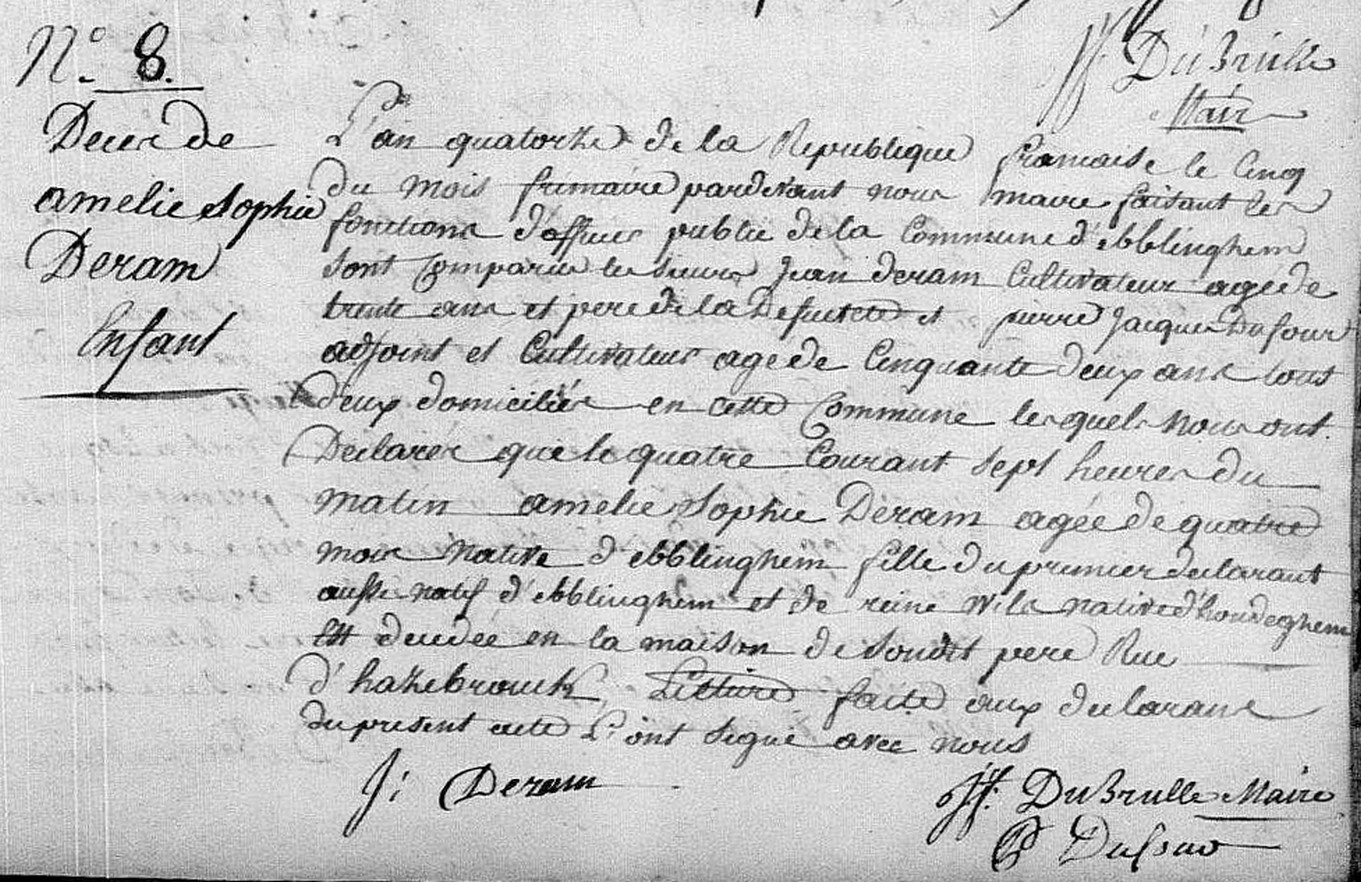 Jf Dubrulle
Maire
N.o 8.
Deces de
amelie Sophie
Deram
Enfant
L'an quatorze de la Republique francaise le cinq
du mois frimaire pardevant nous maire faisant les
fonctions d'officier public de la Commune d'ebblinghem
sont comparus les sieurs Jean deram Cultivateur agé de
trente ans et pere de la Defunte et pierre Jacques Dufour
adjoint et Cultivateur agé de Cinquante deux ans tous
deux domiciliés en cette Commune les quels nous ont
Declarés que le quatre Courant sept heures du
matin amelie Sophie Deram agée de quatre
mois native d'ebblinghem fille du premier declarant
aussi natif d'ebblinghem et de reine Wils native d'hondeghem
Est decedée en la maison de Soudit pere Rue
d'hazebrouck, Lecture faite aux declarans
du present acte L'ont signé avec nous
J: Deram
Jf. DuBrulle Maire
P Dufour